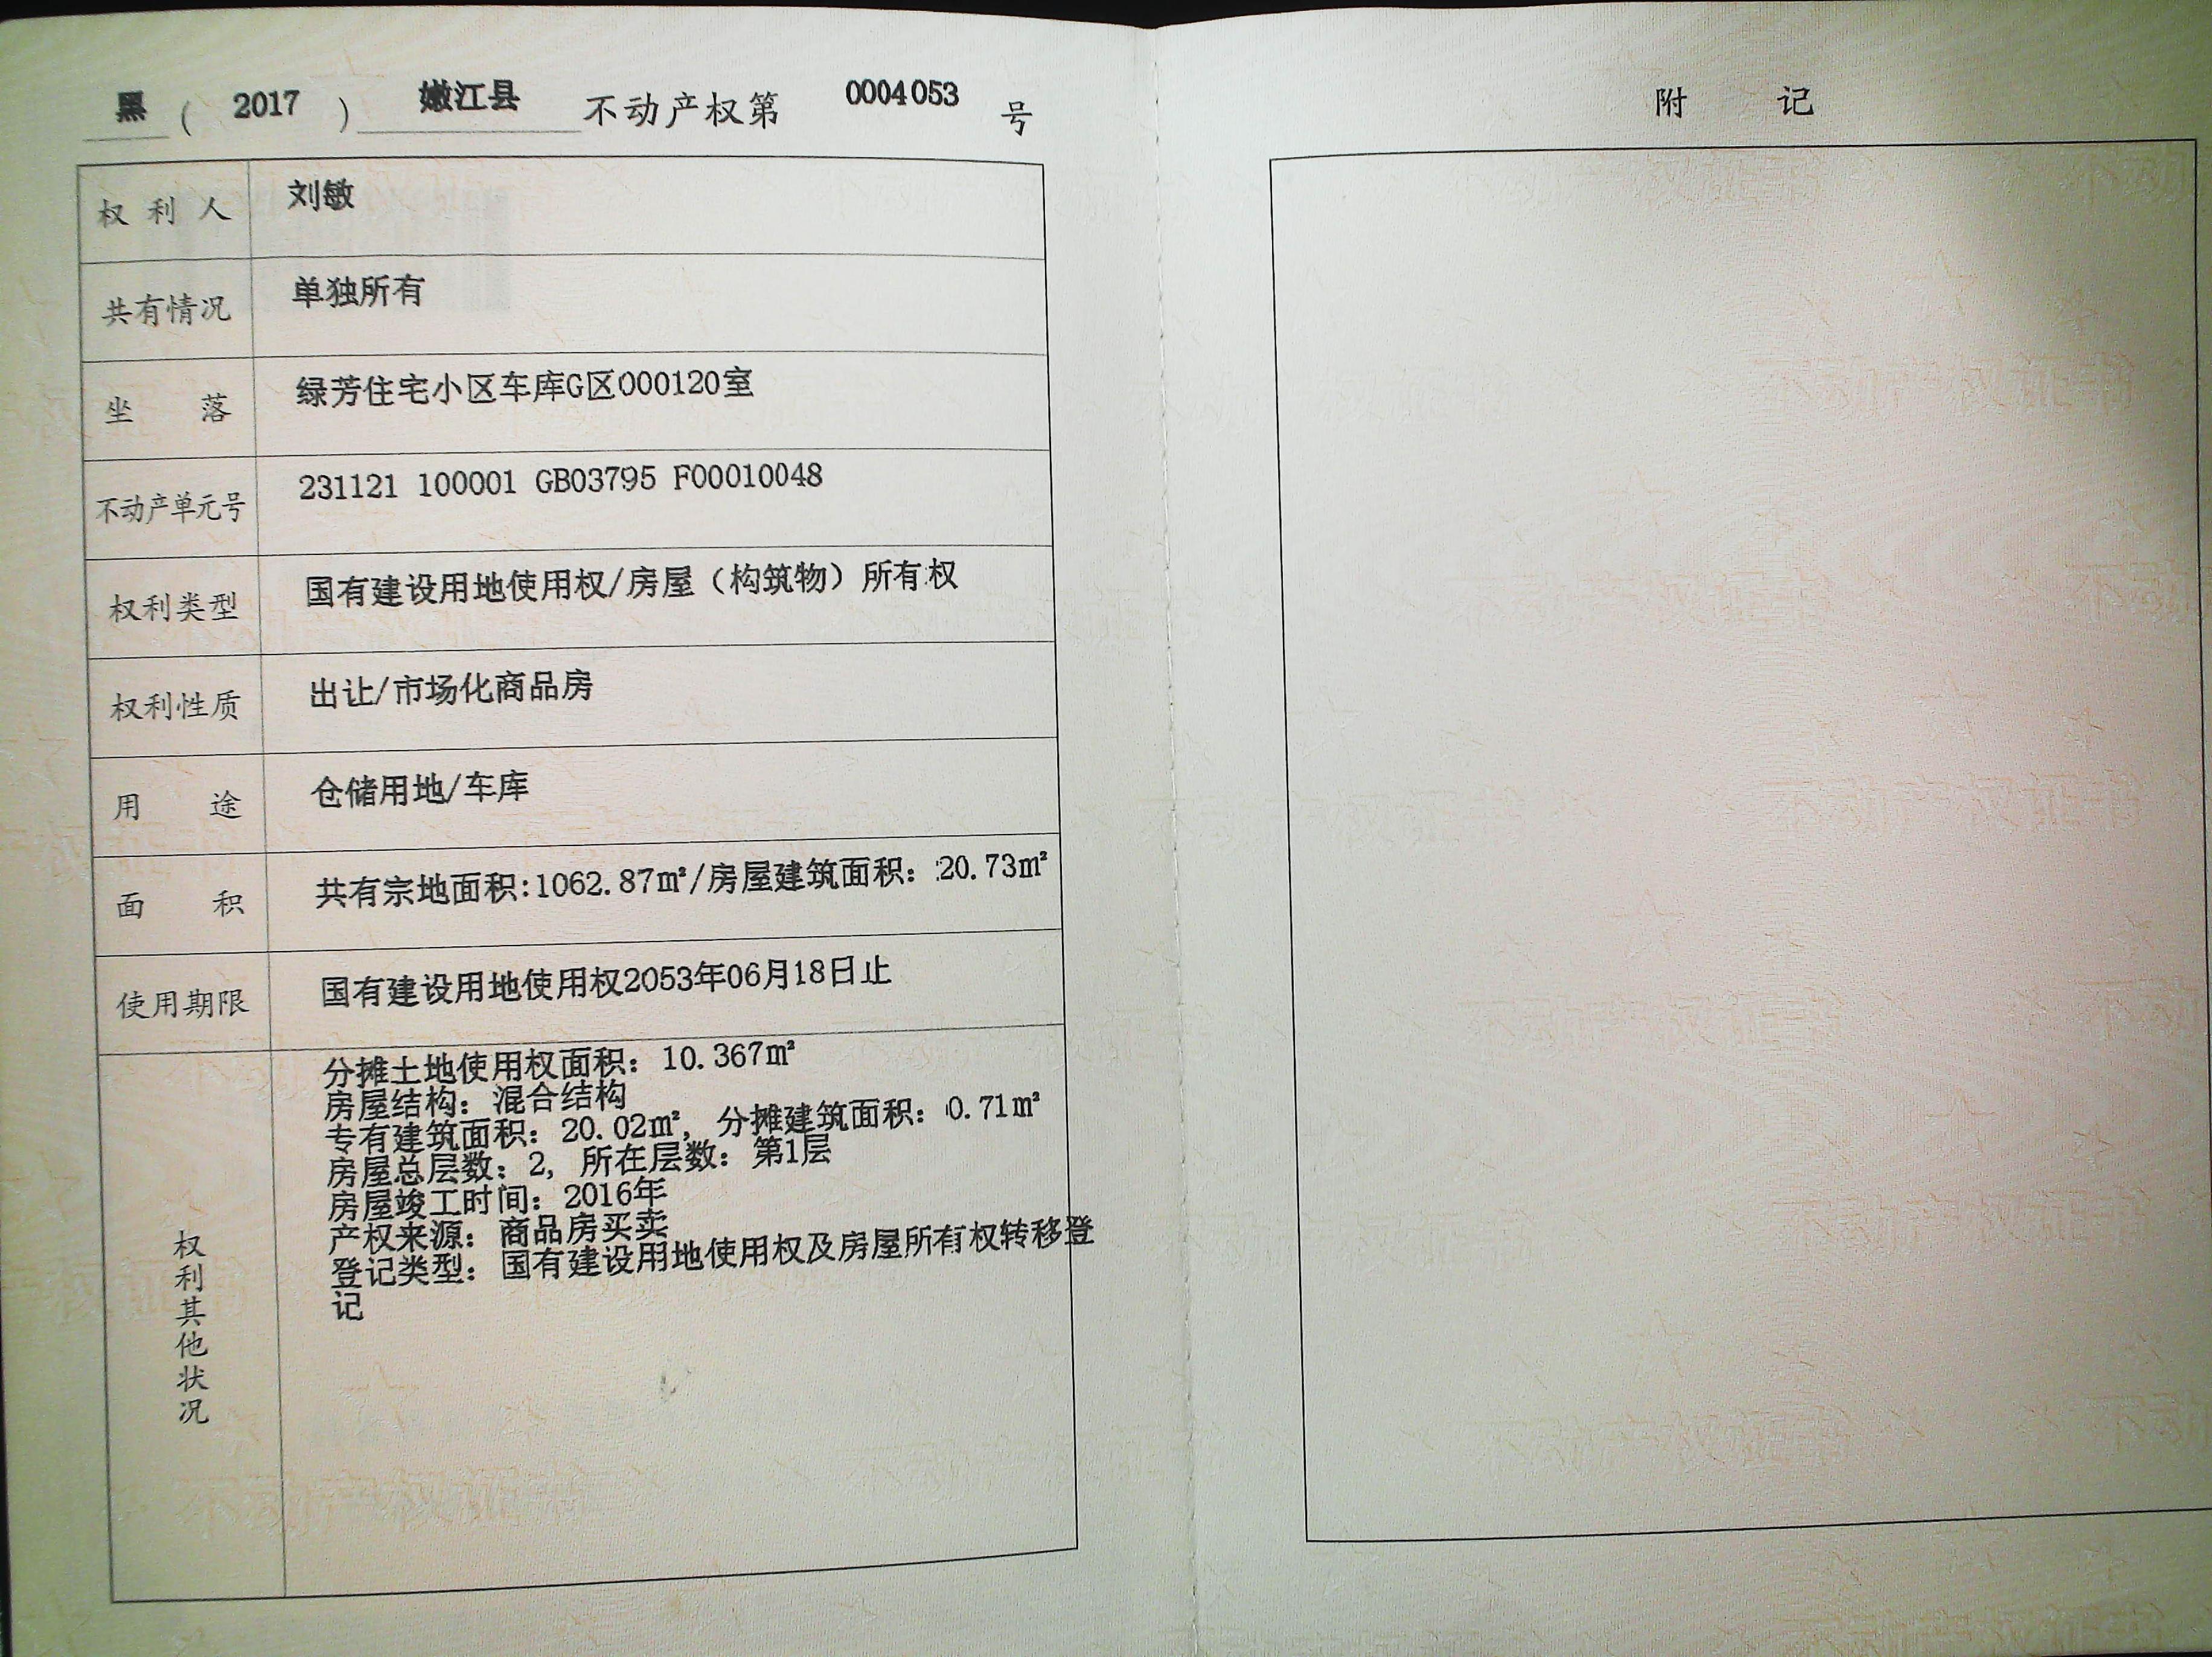 黑（ 2017 ）嫩江县 不动产权第 0004053 号
权利人 刘敏
共有情况 单独所有
坐落 绿芳住宅小区车库G区000120室
不动产单元号 231121 100001 GB03795 F00010048
权利类型 国有建设用地使用权/房屋（构筑物）所有权
权利性质 出让/市场化商品房
用途 仓储用地/车库
面积 共有宗地面积:1062.87㎡/房屋建筑面积：20.73㎡
使用期限 国有建设用地使用权2053年06月18日止
权利其他状况
分摊土地使用权面积：10.367㎡
房屋结构：混合结构
专有建筑面积：20.02㎡，分摊建筑面积：0.71㎡
房屋总层数：2，所在层数：第1层
房屋竣工时间：2016年
产权来源：商品房买卖
登记类型：国有建设用地使用权及房屋所有权转移登
记
附记